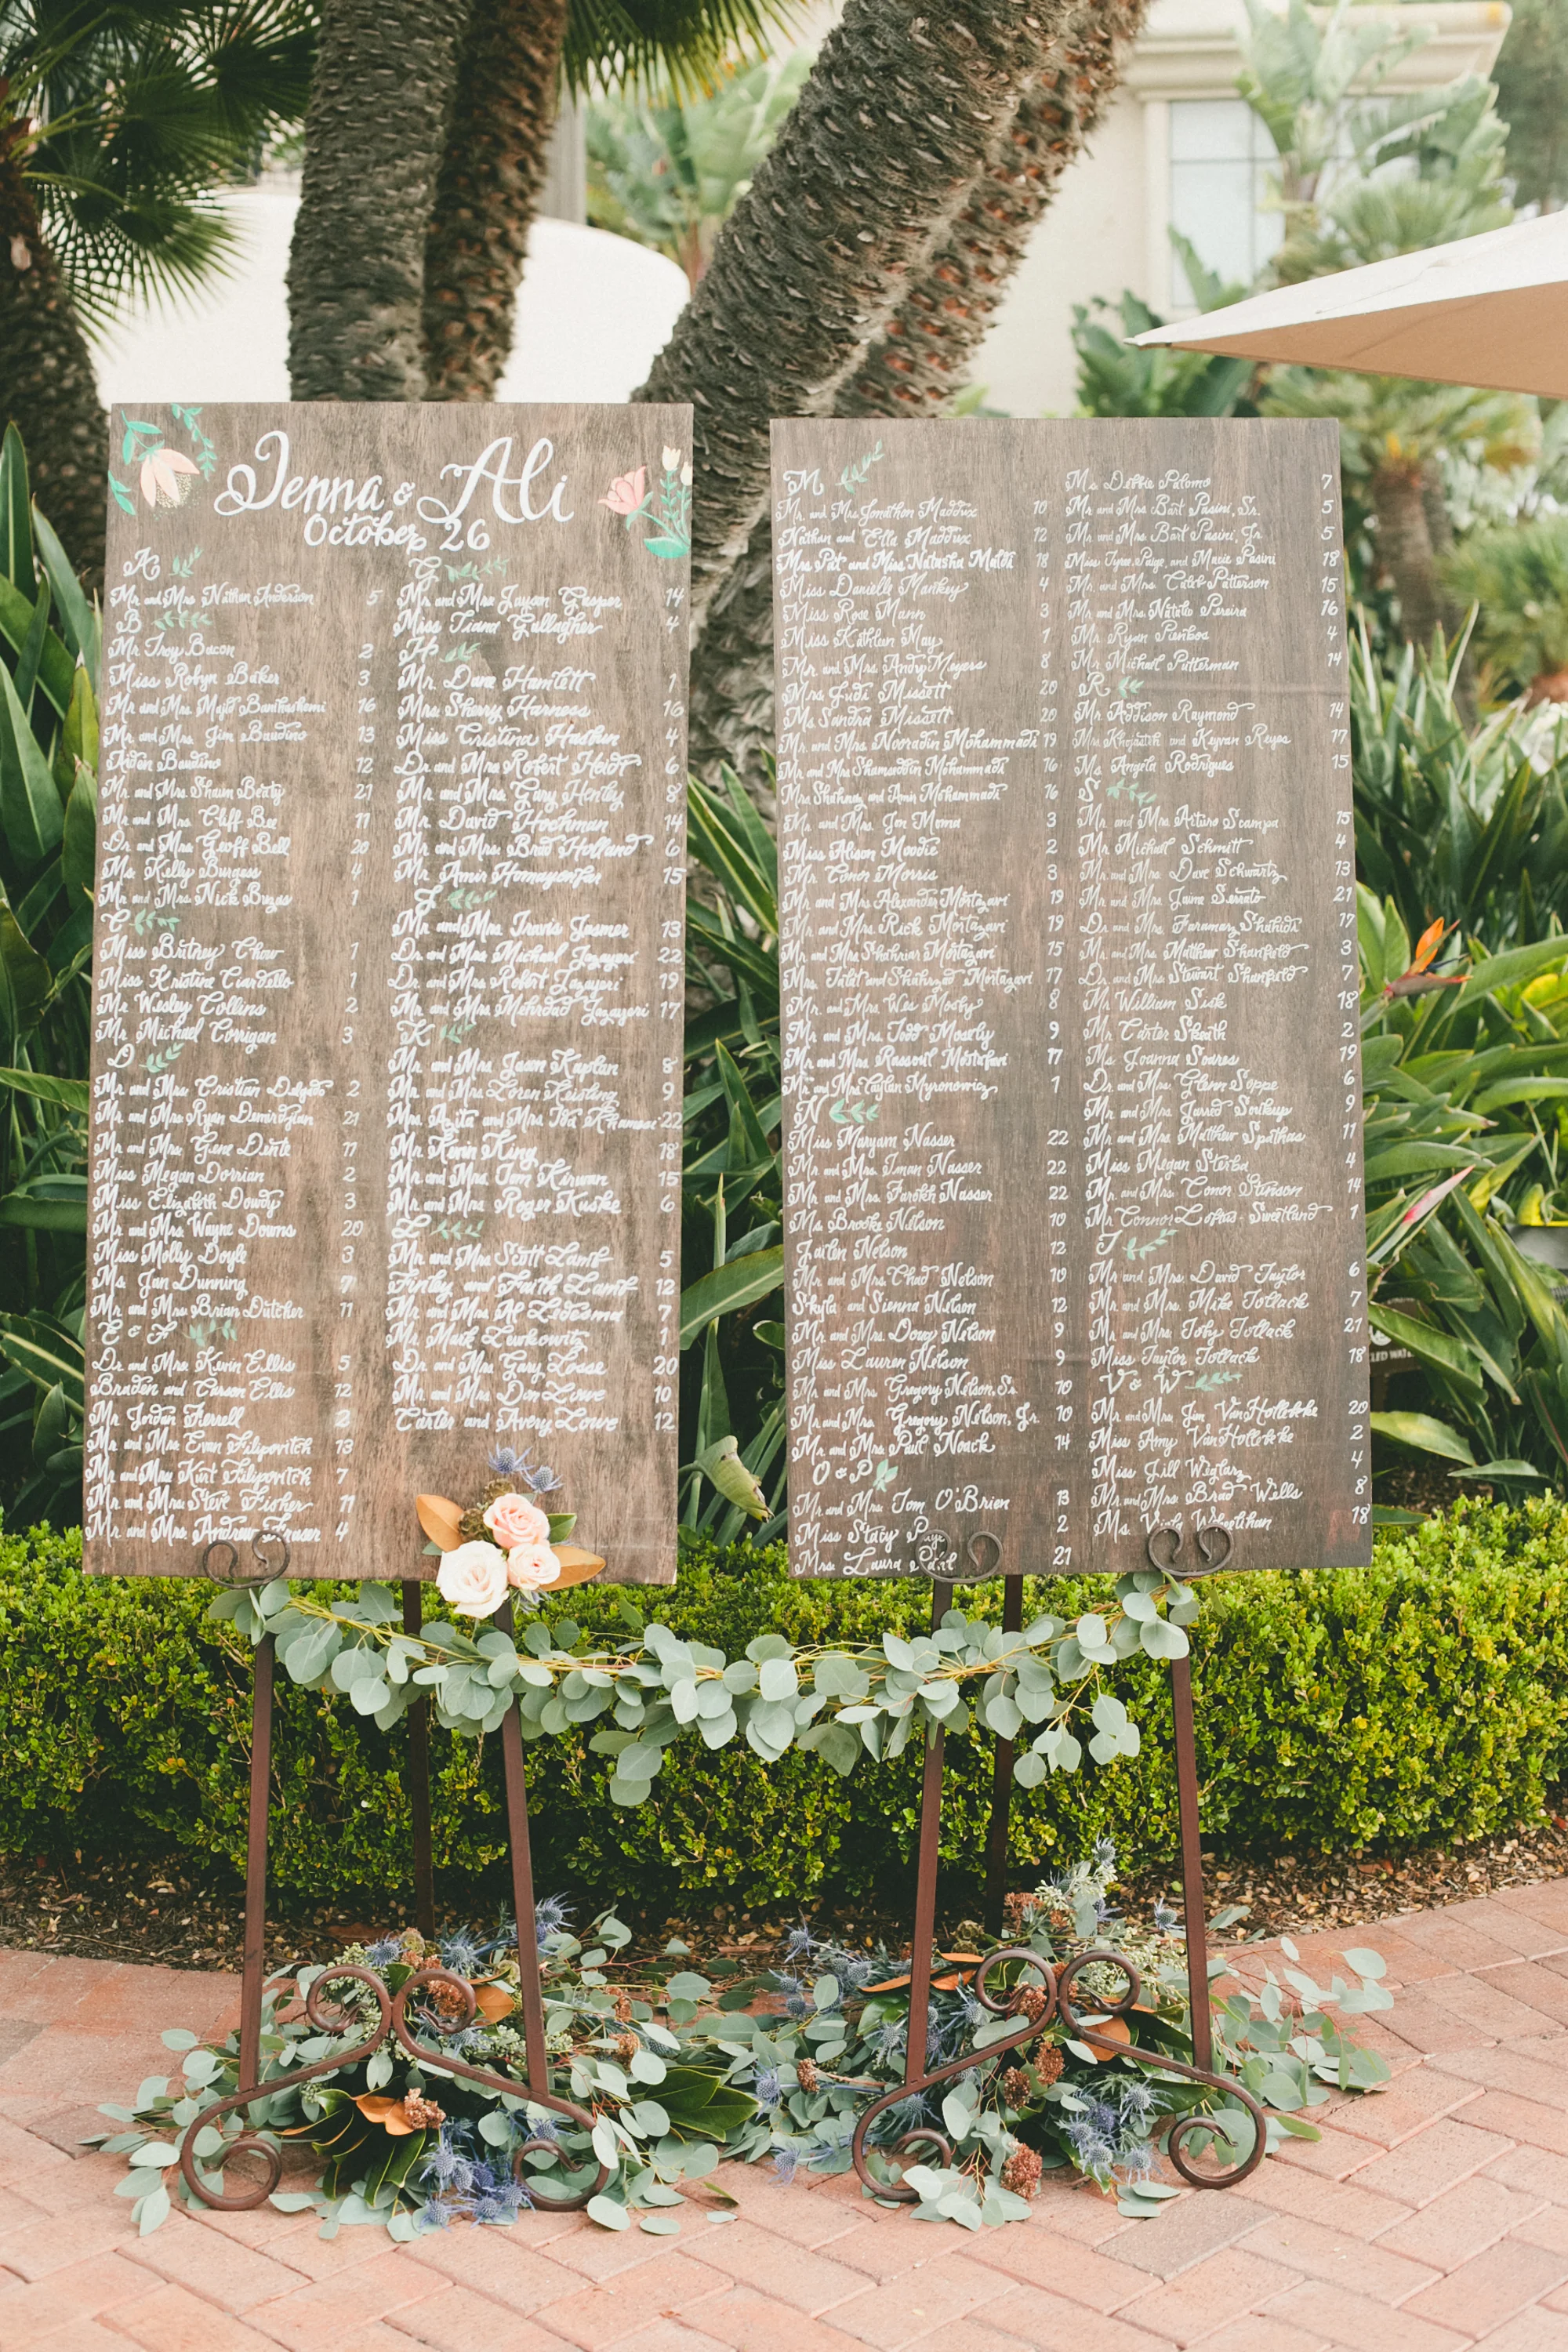 Jenna & Ali
October 26
A
Mr. and Mrs. Nathan Anderson 5
B
Mr. Troy Bacon 2
Miss Robyn Baker 3
Mr. and Mrs. Majid Banihashemi 16
Mr. and Mrs. Jim Baudino 13
Aiden Baudino 12
Mr. and Mrs. Shaun Beaty 21
Mr. and Mrs. Cliff Bee 11
Dr. and Mrs. Geoff Bell 20
Ms. Kelly Burgess 4
Mr. and Mrs. Nick Buzas 1
C
Miss Britney Chow 1
Miss Kristine Ciardello 1
Mr. Wesley Collins 2
Mr. Michael Corrigan 3
D
Mr. and Mrs. Cristian Delgado 2
Mr. and Mrs. Ryan Demirdjian 21
Mr. and Mrs. Gene Dente
Miss Megan Dorrian 2
Miss Elizabeth Dowdy 3
Mr. and Mrs. Wayne Downs 20
Miss Molly Doyle 3
Ms. Jan Dunning 7
Mr. and Mrs. Brian Dutcher 11
E & F
Dr. and Mrs. Kevin Ellis 5
Braden and Carson Ellis 12
Mr. Jordan Ferrell 2
Mr. and Mrs. Evan Filipovitch 13
Mr. and Mrs. Kurt Filipovitch 7
Mr. and Mrs. Steve Fisher 11
Mr. and Mrs. Andrew Fraser 4
G
Mr. and Mrs. Jayson Gasper 14
Miss Tiani Gallagher 4
H
Mr. Dave Hamlett 1
Mrs. Sherry Harness 16
Miss Cristina Hashun 4
Dr. and Mrs. Robert Heidt 6
Mr. and Mrs. Gary Henley 8
Mr. David Hochman 14
Mr. and Mrs. Brad Holland 6
Mr. Amir Homayounfar 15
J
Mr. and Mrs. Travis Jasmer 13
Dr. and Mrs. Michael Jazayeri 22
Dr. and Mrs. Robert Jazayeri 19
Mr. and Mrs. Mehrdad Jazayeri 17
K
Mr. and Mrs. Jason Kaplan 8
Mr. and Mrs. Loren Keisling 9
Mrs. and Mrs. 22
Mr. Kevin King 18
Mr. and Mrs. Tom Kirwan 15
Mr. and Mrs. Roger Kuske 6
L
Mr. and Mrs. Scott Lamb 5
Finley and Faith Lamb 12
Mr. and Mrs. Al Ledesma 7
Mr. Mark Lewkowitz 1
Dr. and Mrs. Gary Losse 20
Mr. and Mrs. Don Lowe 10
Carter and Avery Lowe 12
M
Mr. and Mrs. Jonathon Maddux 10
Nathan and Ella Maddux 12
Mrs. Pat and Miss Natasha Maldi 18
Miss Danielle Mankey 4
Miss Rose Mann 3
Miss Kathleen May 1
Mr. and Mrs. Andy Meyers 8
Mrs. Judi Missett 20
Ms. Sandra Missett 20
Mr. and Mrs. Nooradin Mohammadi 19
Mr. and Mrs. Shamseddin Mohammadi 16
Mrs. Shahnaz and Amir Mohammadi 16
Mr. and Mrs. Jon Moma 3
Miss Alison Moodie 2
Mr. Conor Morris 3
Mr. and Mrs. Alexander Mortazavi 19
Mr. and Mrs. Rick Mortazavi 19
Mr. and Mrs. Shahriar Mortazavi 15
Mrs. Talat and Shahrzad Mortazavi 17
Mr. and Mrs. Wes Mosby 8
Mr. and Mrs. Todd Mosely 9
Mr. and Mrs. Rassoul Mostafavi 17
Mr. and Mrs. Taylan Myronowicz 1
N
Miss Maryam Nasser 22
Mr. and Mrs. Iman Nasser 22
Mr. and Mrs. Farokh Nasser 22
Ms. Brooke Nelson 10
Jailen Nelson 12
Mr. and Mrs. Chad Nelson 10
Skyla and Sienna Nelson 12
Mr. and Mrs. Doug Nelson 9
Miss Lauren Nelson 9
Mr. and Mrs. Gregory Nelson, Sr. 10
Mr. and Mrs. Gregory Nelson, Jr. 10
Mr. and Mrs. Paul Noack 14
O & P
Mr. and Mrs. Tom O'Brien 13
Miss Stacy Paje 2
Mrs. Laura 21
Ms. Debbie Palomo 7
Mr. and Mrs. Bart Pasini, Sr. 5
Mr. and Mrs. Bart Pasini, Jr. 5
Miss Tyree, Paige, and Macie Pasini 18
Mr. and Mrs. Caleb Patterson 15
Mr. and Mrs. Natale Pereira 16
Mr. Ryan Pienbos 4
Mr. Michael Putterman 14
R
Mr. Addison Raymond 14
Mrs. Khojasteh and Keyvan Reyes 17
Ms. Angela Rodrigues 15
S
Mr. and Mrs. Arturo Scampa 15
Mr. Michael Schmitt 4
Mr. and Mrs. Dave Schwartz 13
Mr. and Mrs. Jaime Serrato 21
Dr. and Mrs. Faramarz Shahidi 17
Mr. and Mrs. Matthew Shanfield 3
Dr. and Mrs. Stewart Shanfield 7
Mr. William Sisk 18
Mr. Carter Skeath 2
Ms. Joanna Soares 19
Dr. and Mrs. Glenn Soppe 6
Mr. and Mrs. Jarred Sotkeys 9
Mr. and Mrs. Matthew Spathas 11
Miss Megan Sterba 4
Mr. and Mrs. Conor Stinson 14
Mr. Connor Loftus-Sweetland 1
T
Mr. and Mrs. David Taylor 6
Mr. and Mrs. Mike Tollack 7
Mr. and Mrs. Toby Tollack 21
Miss Taylor Tollack 18
V & W
Mr. and Mrs. Jim VanHollebeke 20
Miss Amy VanHollebeke 2
Miss Jill Weglarz 4
Mr. and Mrs. Brad Wells 8
Ms. Wheelihan 18